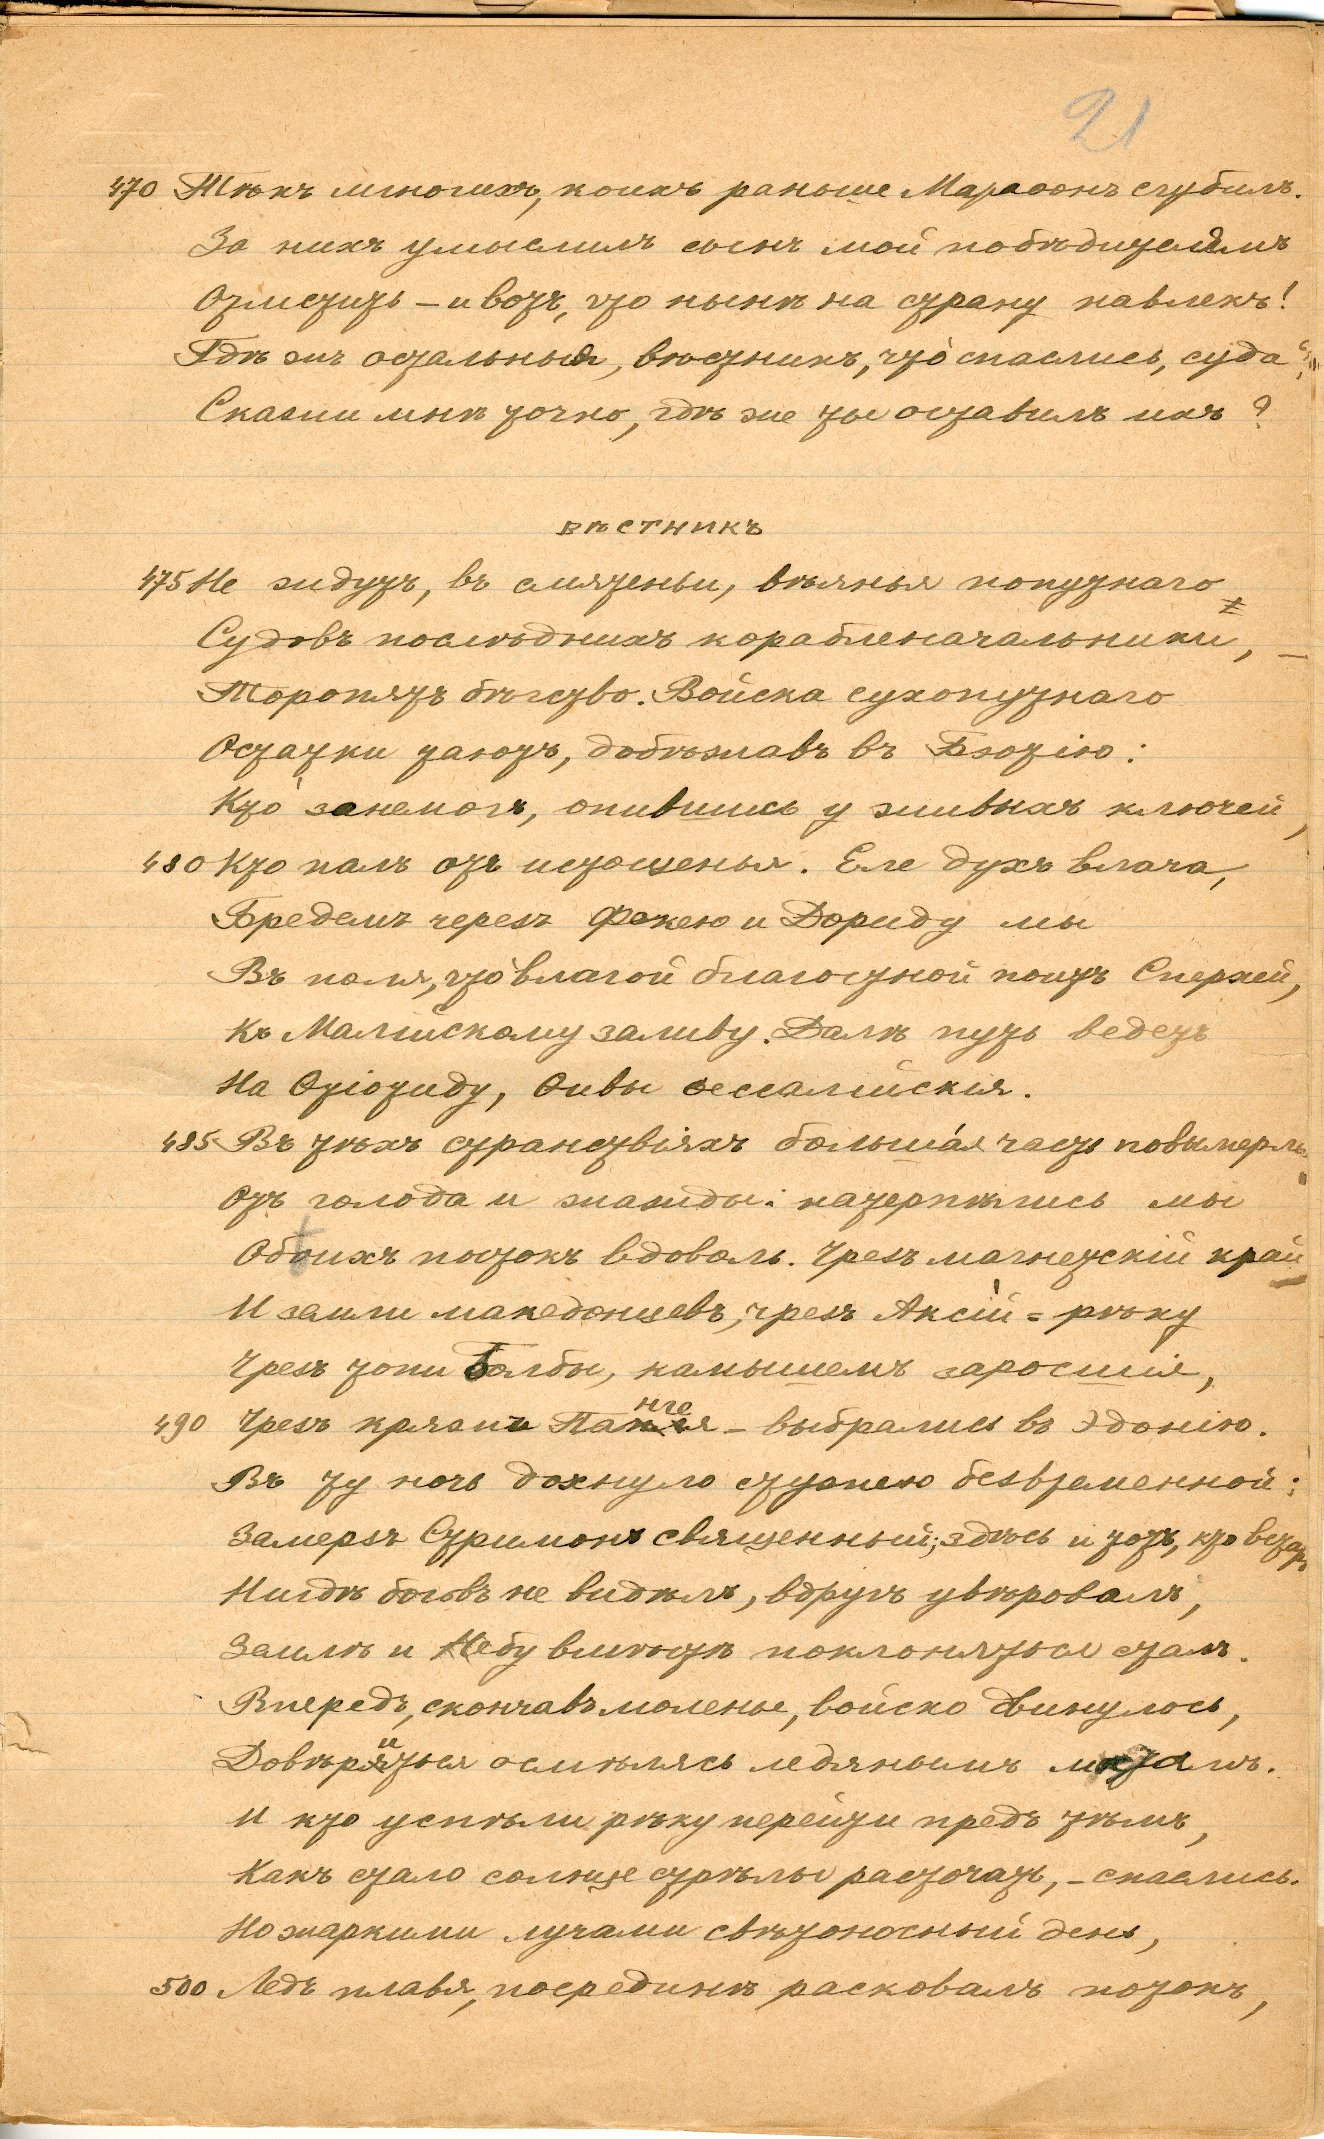 21
470 Тѣхъ многихъ, коихъ раньше Мараѳонъ сгубилъ.
За нихъ умыслилъ сынъ мой побѣдителямъ
Отмстить – и вотъ, что нынѣ на страну навлекъ!
Гдѣ жъ остальныя, вѣстникъ, что́ спаслись, суда
Скажи мнѣ точно, гдѣ же ты оставилъ ихъ?
вѣстникъ
475 Не ждутъ, въ смятеньи, вѣянья попутнаго
Судовъ послѣднихъ корабленачальники, –
Торопятъ бѣгство. Войска сухопутнаго
Остатки таютъ, добѣжавъ въ Беотію:
Кто́ занемогъ, опившись у живыхъ ключей,
480 Кто палъ отъ истощенья. Еле духъ влача,
Бредемъ черезъ Фокею и Дориду мы
Въ поля, что́ влагой благостной поитъ Сперхей,
Къ Малійскому заливу. Далѣ путь ведетъ
На Ѳтіотиду, Ѳивы ѳессалійскія.
485 Въ тѣхъ странствіяхъ бо́льша́я часть повымерла
Отъ голода и жажды: натерпѣлись мы
Обоихъ пытокъ вдоволь. Чрезъ магнетскій край
И земли македонцевъ, чрезъ Аксій = рѣку
Чрезъ топи Болбы, камышемъ заросшія,
490 Чрезъ кряжъ Пангея – выбрались въ Эдонію.
Въ ту ночь дохнуло стужею безвременной:
Замерзъ Стримонъ священный; здѣсь и тотъ, кто встарь
Нигдѣ боговъ не видѣлъ, вдругъ увѣровалъ,
Землѣ и Небу вмѣстѣ поклоняться сталъ.
Впередъ, скончавъ моленье, войско двинулось,
Довѣриться осмѣлясь ледянымъ мѣтамъ.
И кто успѣли рѣку перейти предъ тѣмъ,
Какъ стало солнце стрѣлы расточать, – спаслись.
Но жаркими лучами свѣтоносный день,
500 Ледъ плавя, посрединѣ расковалъ потокъ,